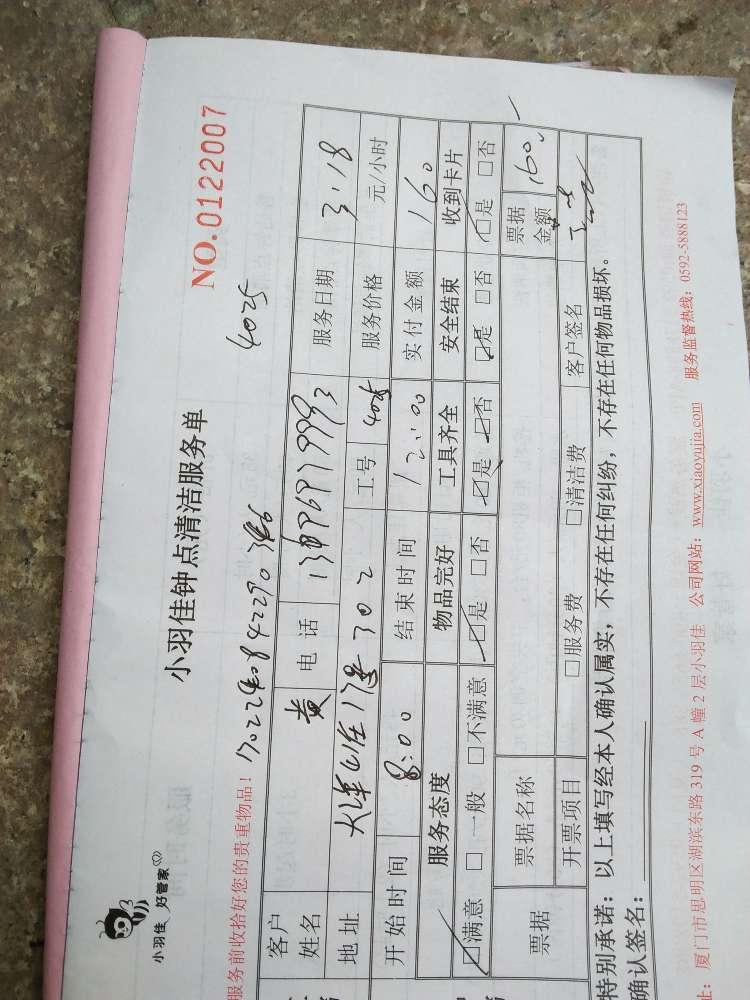 小羽佳 好管家
小羽佳钟点清洁服务单
NO.0122007
服务前收拾好您的贵重物品！
4025
客户姓名 黄 电话 服务日期 3.18
地址 302 工号 4025 服务价格 元/小时
开始时间 8:00 结束时间 12:00 实付金额 160
服务态度 物品完好 工具齐全 安全结束 收到卡片
□满意 □一般 □不满意 □是 □否 □是 □否 □是 □否 □是 □否
票据 票据名称 票据金额 160
开票项目 □服务费 □清洁费 客户签名
特别承诺：以上填写经本人确认属实，不存在任何纠纷，不存在任何物品损坏。
确认签名：
址：厦门市思明区湖滨东路319号A幢2层小羽佳 公司网站：www.xiaoyujia.com 服务监督热线：0592-5888123